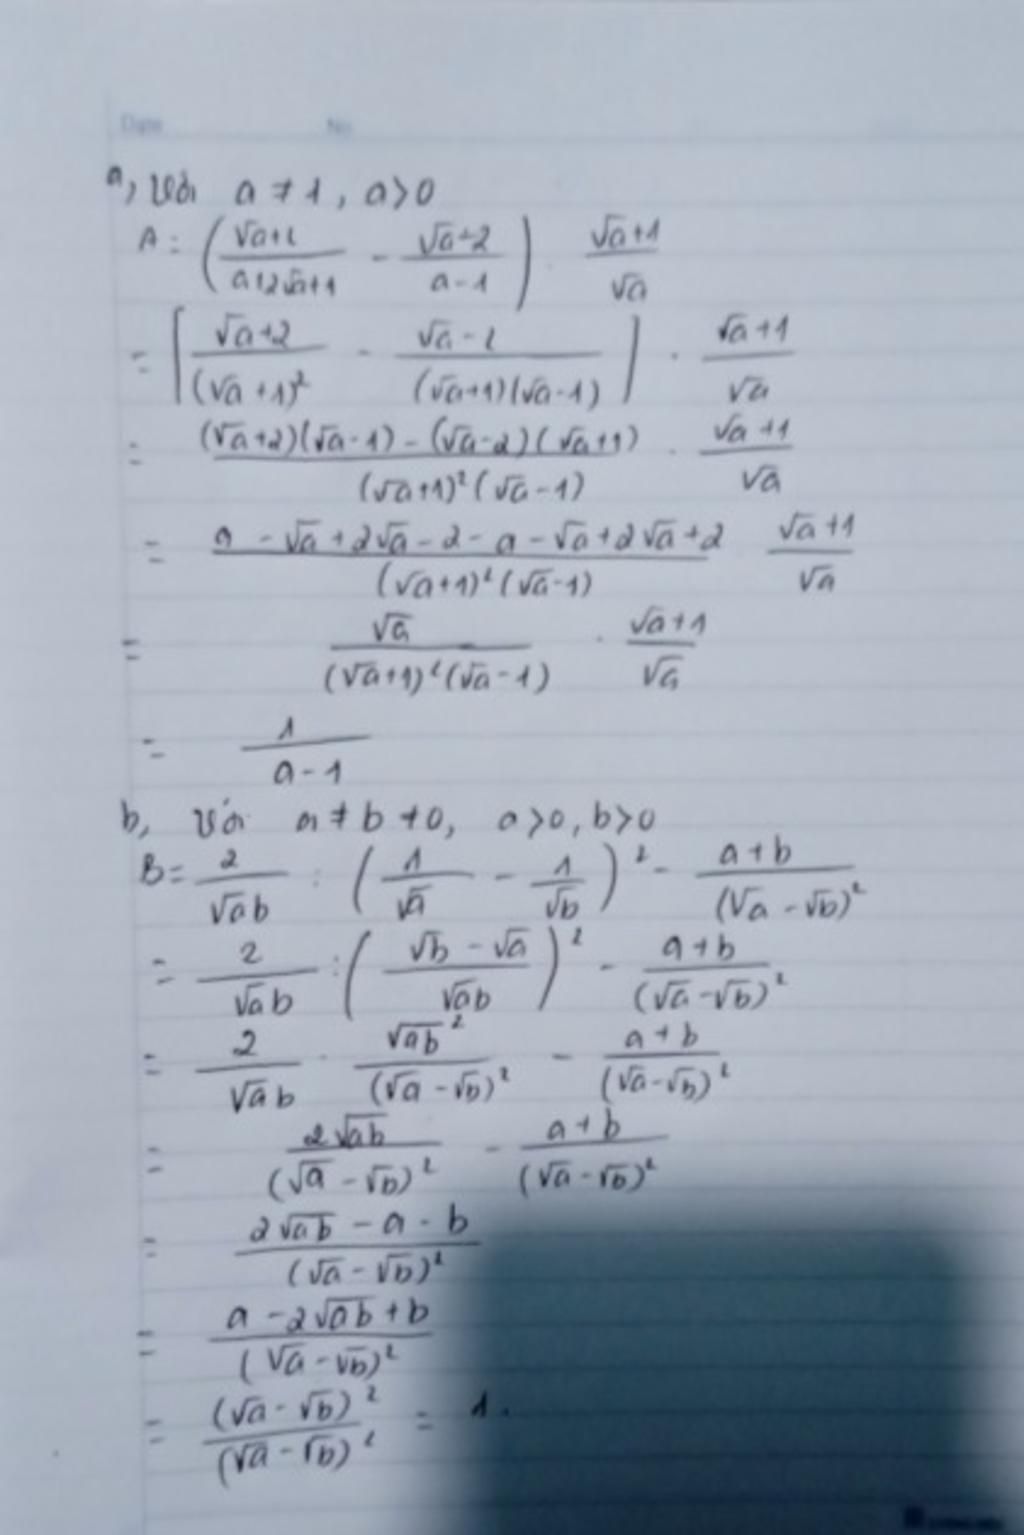 Date No
a, Với a ≠ 1, a > 0
A = ( (√a+2)/(a+2√a+1) - (√a-2)/(a-1) ) . (√a+1)/√a
= [ (√a+2)/(√a+1)² - (√a-2)/((√a+1)(√a-1)) ] . (√a+1)/√a
= ((√a+2)(√a-1) - (√a-2)(√a+1))/((√a+1)²(√a-1)) . (√a+1)/√a
= (a - √a + 2√a - 2 - a - √a + 2√a + 2)/((√a+1)²(√a-1)) (√a+1)/√a
= √a/((√a+1)²(√a-1)) . (√a+1)/√a
= 1/(a-1)
b, Với a ≠ b ≠ 0, a > 0, b > 0
B = 2/√ab : ( 1/√a - 1/√b )² - (a+b)/(√a-√b)²
= 2/√ab : ( (√b-√a)/√ab )² - (a+b)/(√a-√b)²
= 2/√ab . √ab²/(√a-√b)² - (a+b)/(√a-√b)²
= 2√ab/(√a-√b)² - (a+b)/(√a-√b)²
= (2√ab - a - b)/(√a-√b)²
= (a - 2√ab + b)/(√a-√b)²
= (√a-√b)²/(√a-√b)² = 1.